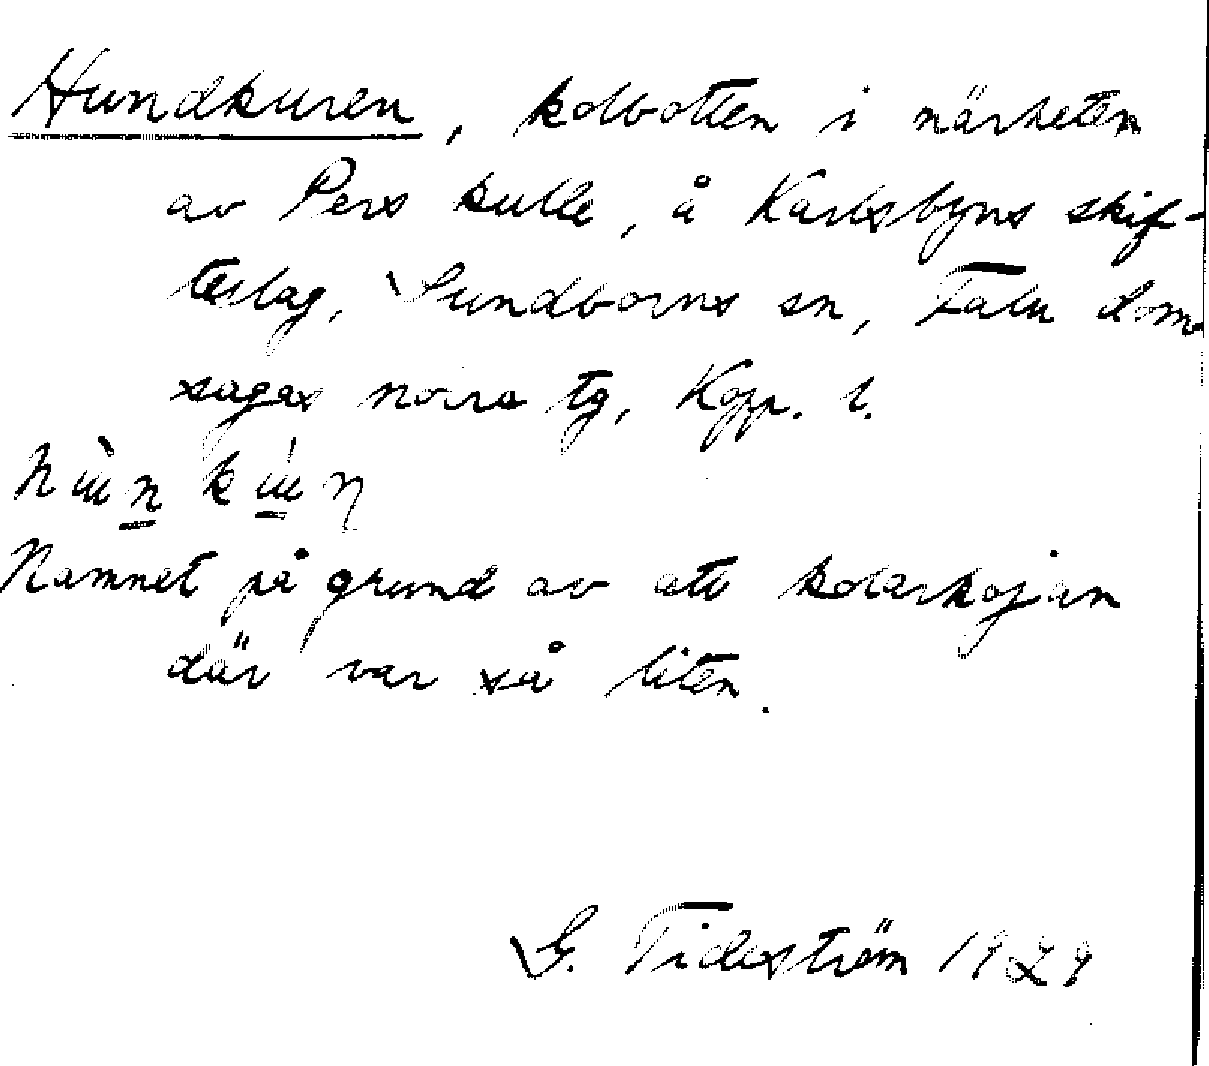 Hundkuren, kolbotten i närheten
av Pers kulle, å Karlsbyns skif-
teslag, Sundborns sn, Falu dom-
sagas norra tg, Kopp. l.
Namnet på grund av att kolarkojan
där var så liten.
G. Tideström 1929